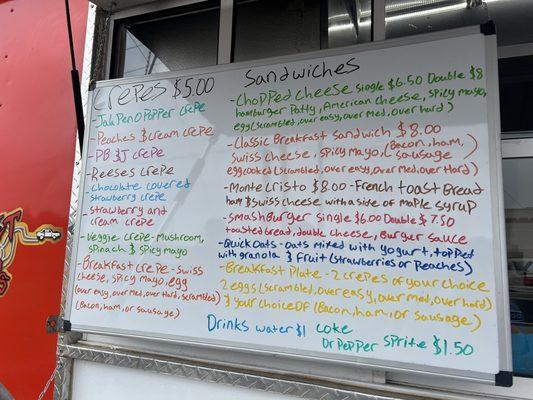 Crepes $5.00
-Jalapeno Popper crepe
-Peaches & cream crepe
-PB & J crepe
-Reeses crepe
-Chocolate covered
strawberry crepe
-Strawberry and
cream crepe
-Veggie crepe-Mushroom,
spinach & spicy mayo
-Breakfast crepe-swiss
cheese, spicy mayo, egg
(over easy, over med, over hard, scrambled)
(Bacon, ham, or sausage)
Sandwiches
-Chopped cheese single $6.50 Double $8
hamburger Patty, American cheese, spicy mayo,
egg (scrambled, over easy, over med, over hard)
-Classic Breakfast sandwich $8.00
swiss cheese, spicy mayo, (Bacon, ham, sausage)
egg cooked (scrambled, over easy, over med, over hard)
-Monte Cristo $8.00-French toast Bread
ham & swiss cheese with a side of maple syrup
-Smash Burger single $6.00 Double $7.50
toasted bread, double cheese, Burger sauce
-Quick Oats-oats mixed with yogurt, topped
with granola & Fruit (strawberries or Peaches)
-Breakfast Plate-2 crepes of your choice
2 eggs (scrambled, over easy, over med, over hard)
& your choice of (Bacon, ham, or sausage)
Drinks water $1 coke
Dr Pepper sprite $1.50